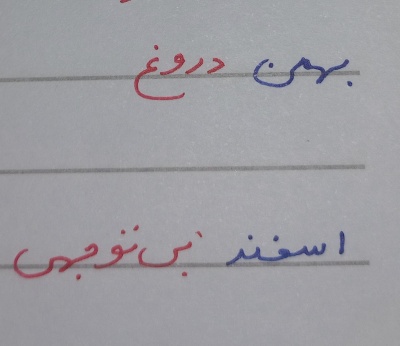 بهمن دروغ
اسفند بی توجهی